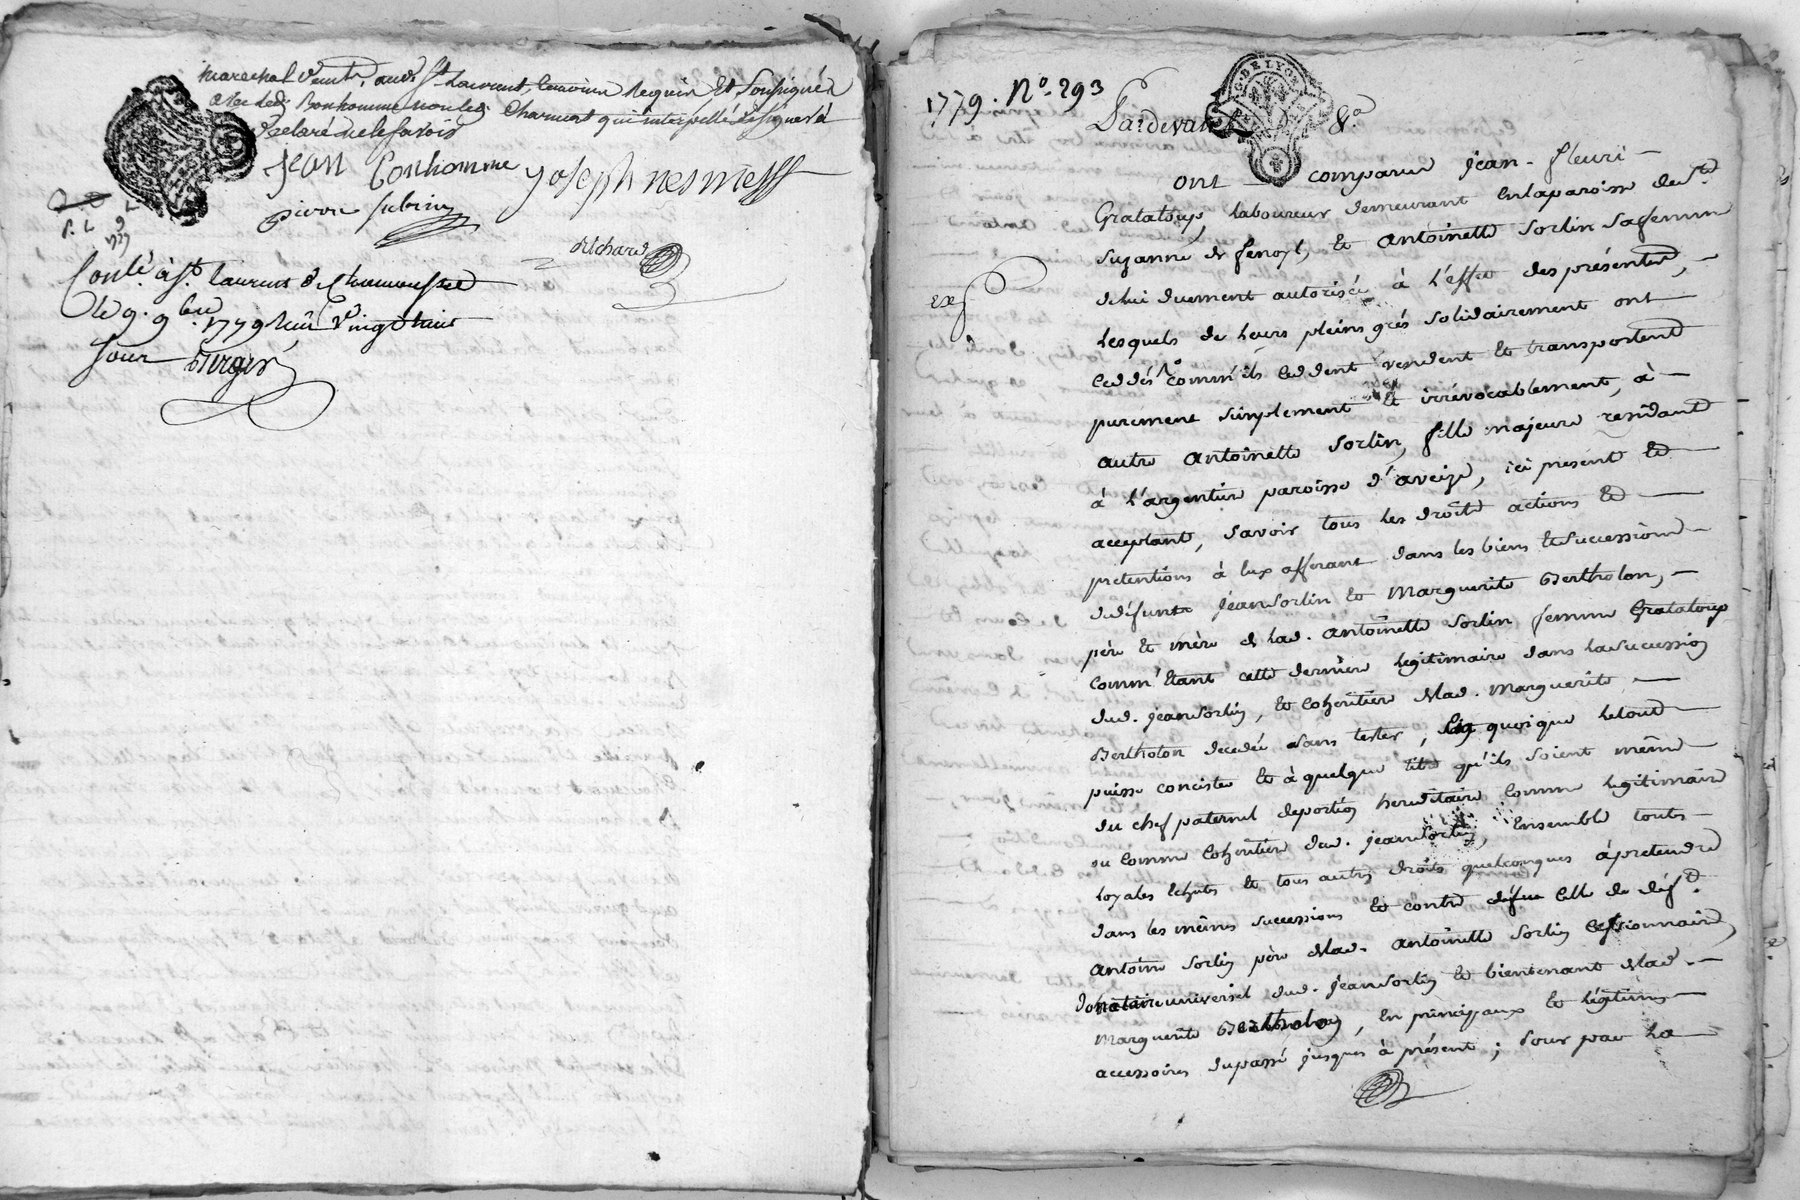 marechal aud. St Laurent, temoins requis Et Soussignés
avec led. Bonhomme non led. Charmont qui interpellé de signer a
declaré ne le savoir
jean bonhomme joseph nesmess
pierre subrin
Richard
Conlé. à St. laurent de Chamousset
le 9. 9bre 1779 vingt huit
sour Burgin
1779. No. 293
Pardevant &a.
DE LYON
ont comparu jean-fleuri
Grataloup, laboureur demeurant en la paroisse de Ste
Suzanne de fenoyl, et antoinette Sorlin sa femme
de lui duement autorisée à l'effet des présentes,
Exp
lesquels de leurs pleins grés solidairement ont
ceddés comm'ils ceddent vendent et transportent
purement simplement et irrévocablement, à
autre antoinette Sorlin, fille majeure residant
à l'argentiere paroisse d'aveize, ici presente et
acceptant, savoir tous les droits actions et
pretentions à eux afferant dans les biens et successions
de défunts jean Sorlin et Marguerite Bertholon,
père et mère de lad. antoinette Sorlin femme Grataloup
comm'étant cette dernière legitimaire dans la succession
dud. jean Sorlin, et cohéritiere de lad. Marguerite
Bertholon decedée sans tester, en quoi que le tout
puisse concister et à quelque titre qu'ils soient même
du chef paternel de portion hereditaire comme legitimaire
ou comme cohéritiere dud. jean Sorlin, Ensemble toutes
loyales echutes et tous autres droits quelconques à pretendre
dans les mêmes successions et contre celle de déft.
antoine Sorlin père de lad. antoinette Sorlin cessionnaire,
donataire universel dud. jean Sorlin et bientenant de lad.
Marguerite Bertholon, en principaux et légitimes
accessoires du passé jusques à présent; pour par la